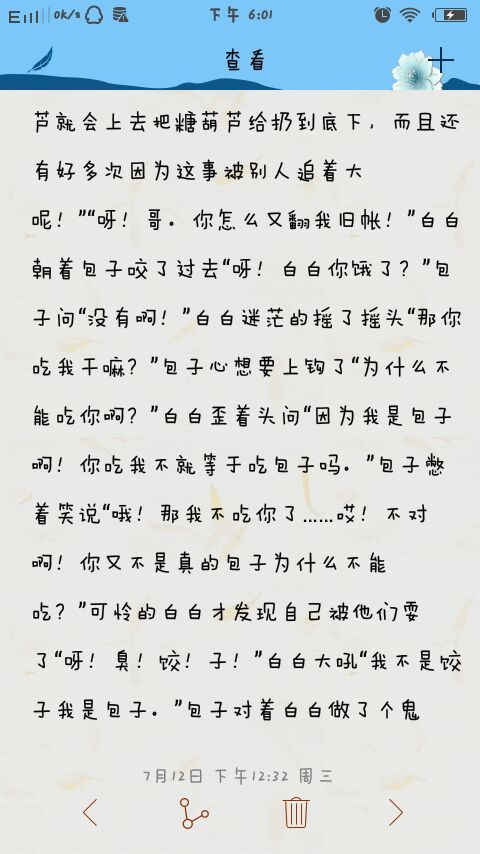 0K/s
下午 6:01
查看
芦就会上去把糖葫芦给扔到底下，而且还
有好多次因为这事被别人追着大
呢！”“呀！哥。你怎么又翻我旧帐！”白白
朝着包子咬了过去“呀！白白你饿了？”包
子问“没有啊！”白白迷茫的摇了摇头“那你
吃我干嘛？”包子心想要上钩了“为什么不
能吃你啊？”白白歪着头问“因为我是包子
啊！你吃我不就等于吃包子吗。”包子憋
着笑说“哦！那我不吃你了……哎！不对
啊！你又不是真的包子为什么不能
吃？”可怜的白白才发现自己被他们耍
了“呀！臭！饺！子！”白白大吼“我不是饺
子我是包子。”包子对着白白做了个鬼
7月12日 下午12:32 周三